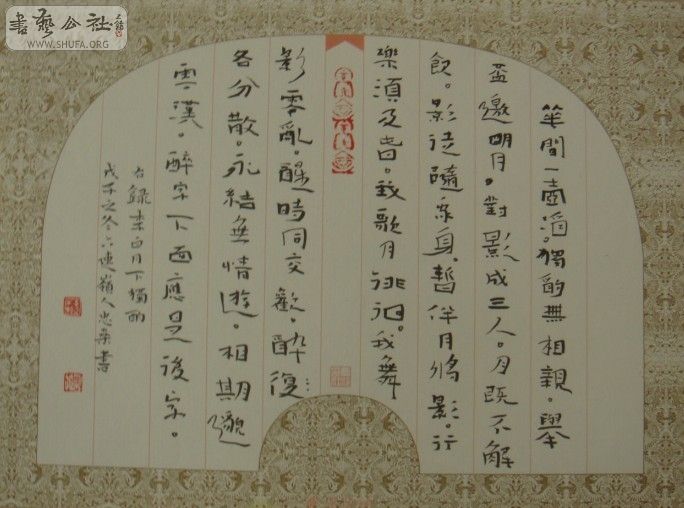 書藝公社
WWW.SHUFA.ORG
華間一壺酒。獨酌無相親。舉
盃邀明月。對影成三人。月既不解
飲。影徒隨我身。暫伴月將影。行
樂須及春。我歌月徘徊。我舞
影零亂。醒時同交歡。醉復
各分散。永結無情遊。相期邈
雲漢。醉字下面應是後字。
右錄李白月下獨酌
戊子之冬六連嶺人忠書